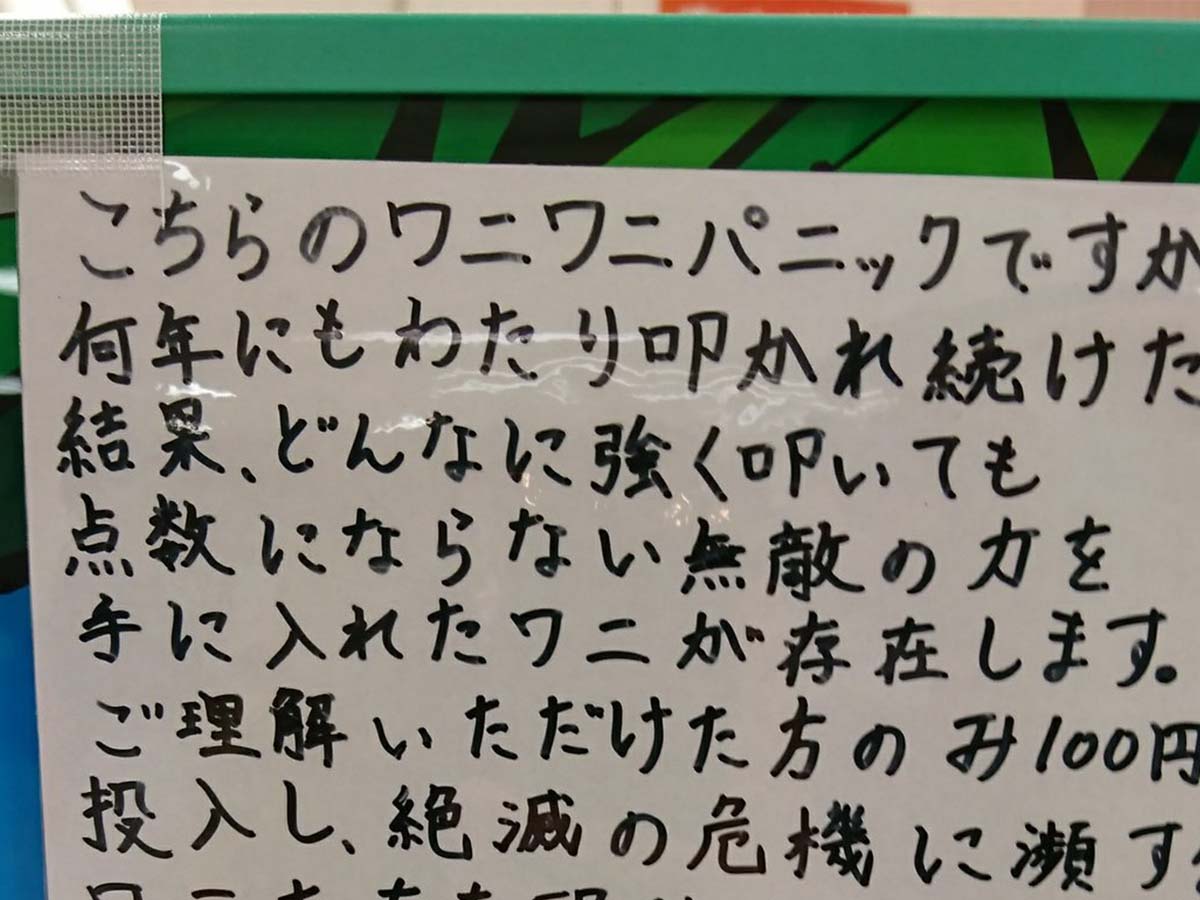 こちらのワニワニパニックですが
何年にもわたり叩かれ続けた
結果、どんなに強く叩いても
点数にならない無敵の力を
手に入れたワニが存在します。
ご理解いただけた方のみ100円
投入し、絶滅の危機に瀕す